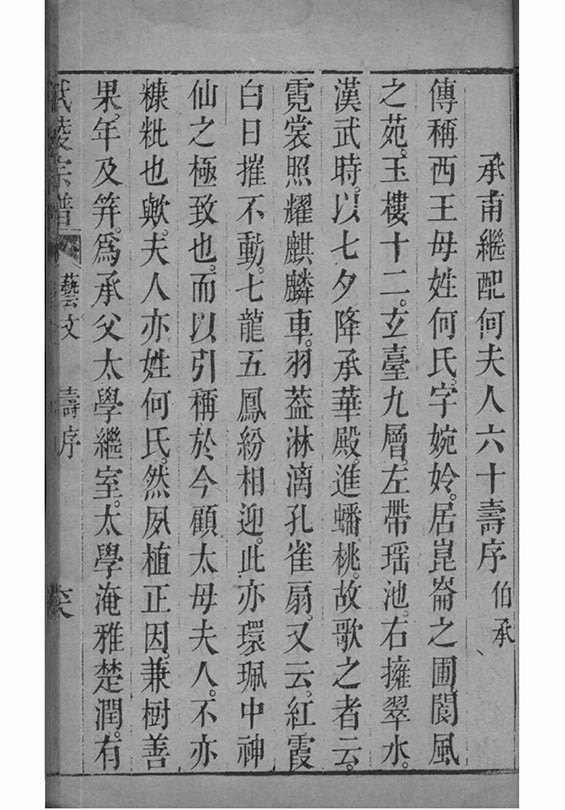 承甫繼配何夫人六十壽序 伯承
傳稱西王母姓何氏。字婉妗。居崑崙之圃。閬風
之苑。玉樓十二。玄臺九層。左帶瑶池。右擁翠水。
漢武時。以七夕降承華殿。進蟠桃。故歌之者云。
霓裳照耀麒麟車。羽葢淋漓孔雀扇。又云。紅霞
白日摧不動。七龍五鳳紛相迎。此亦環珮中神
仙之極致也。而以引稱於今顧太母夫人。不亦
糠粃也歟。夫人亦姓何氏。然夙植正因。兼樹善
果。年及筓。爲承父太學繼室。太學淹雅楚潤。有
宗譜 藝文 壽序